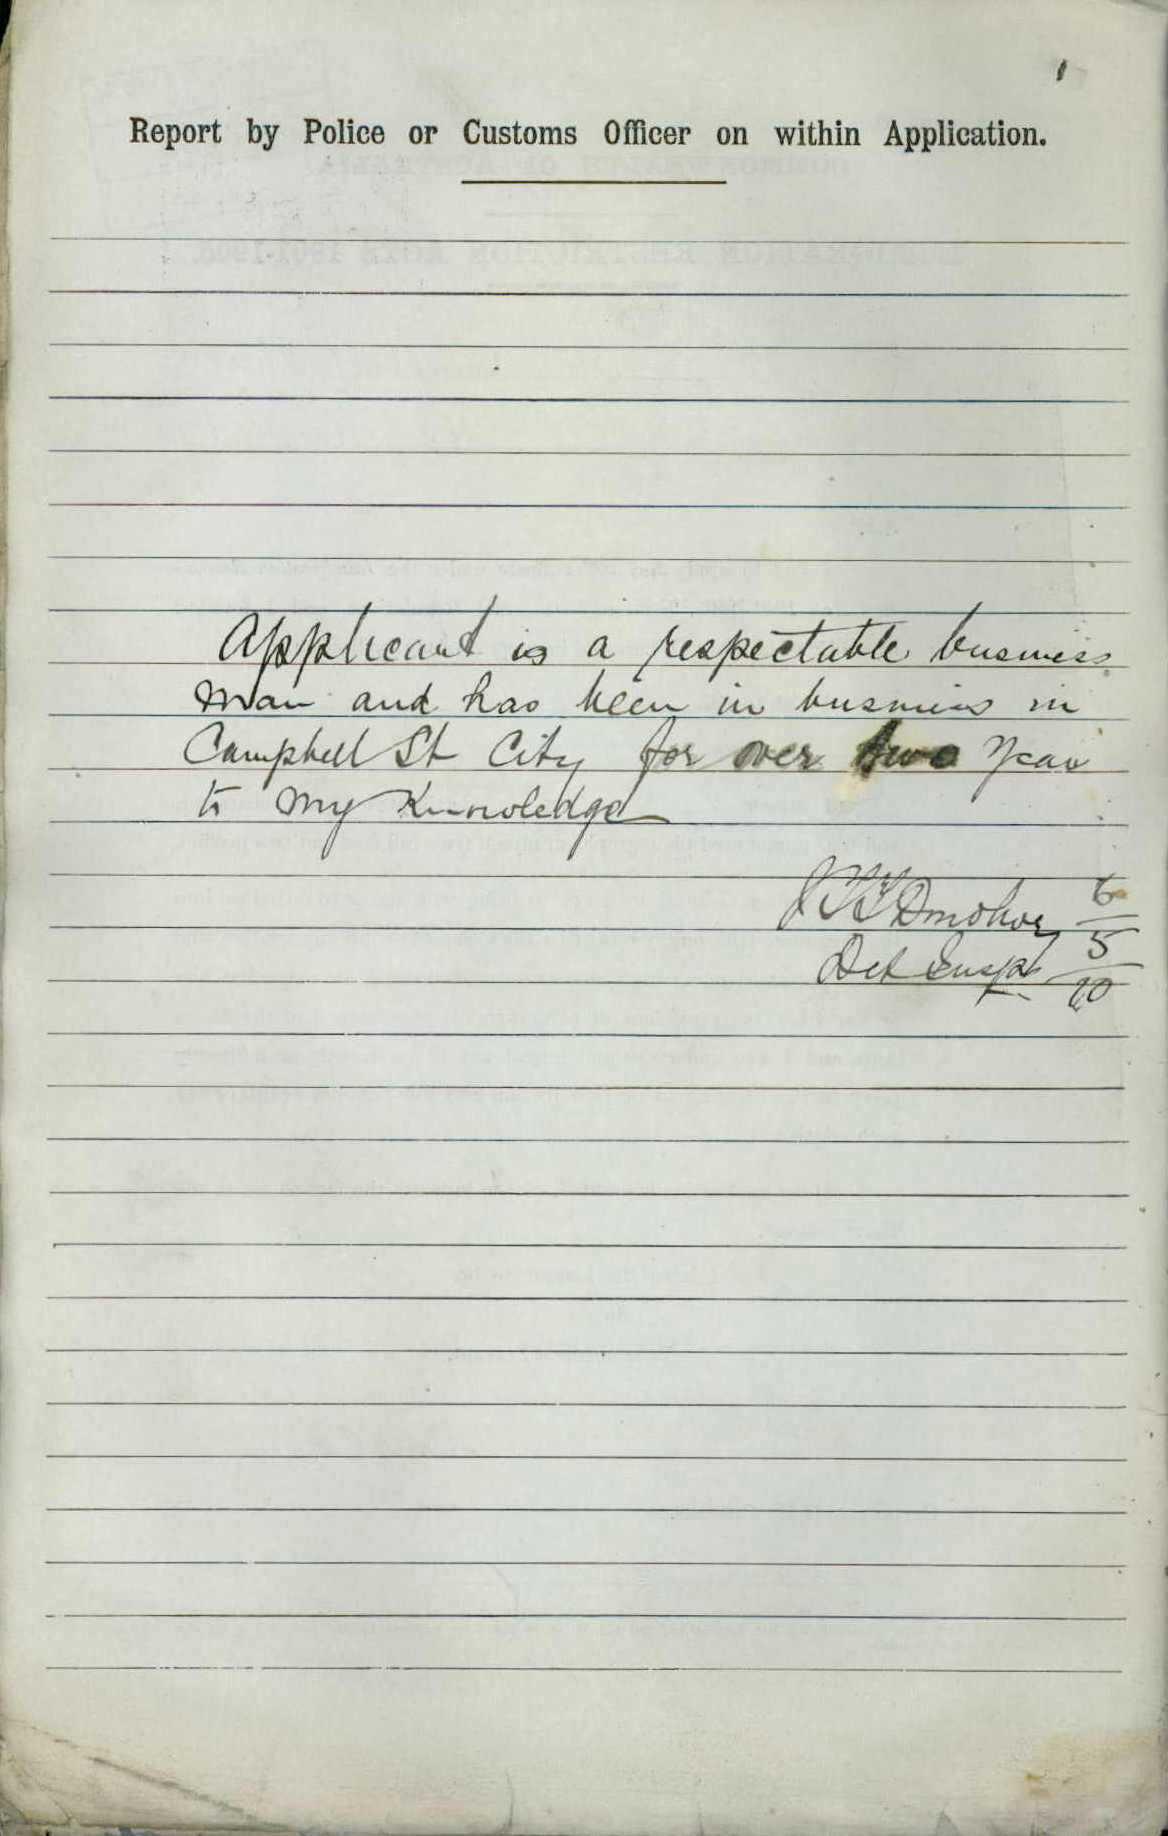 Report by Police or Customs Officer on within Application.
Applicant is a respectable business
man and has been in business in
Campbell St City for over two years
to my Knowledge
Donohoe 6
Det Insp 5
10